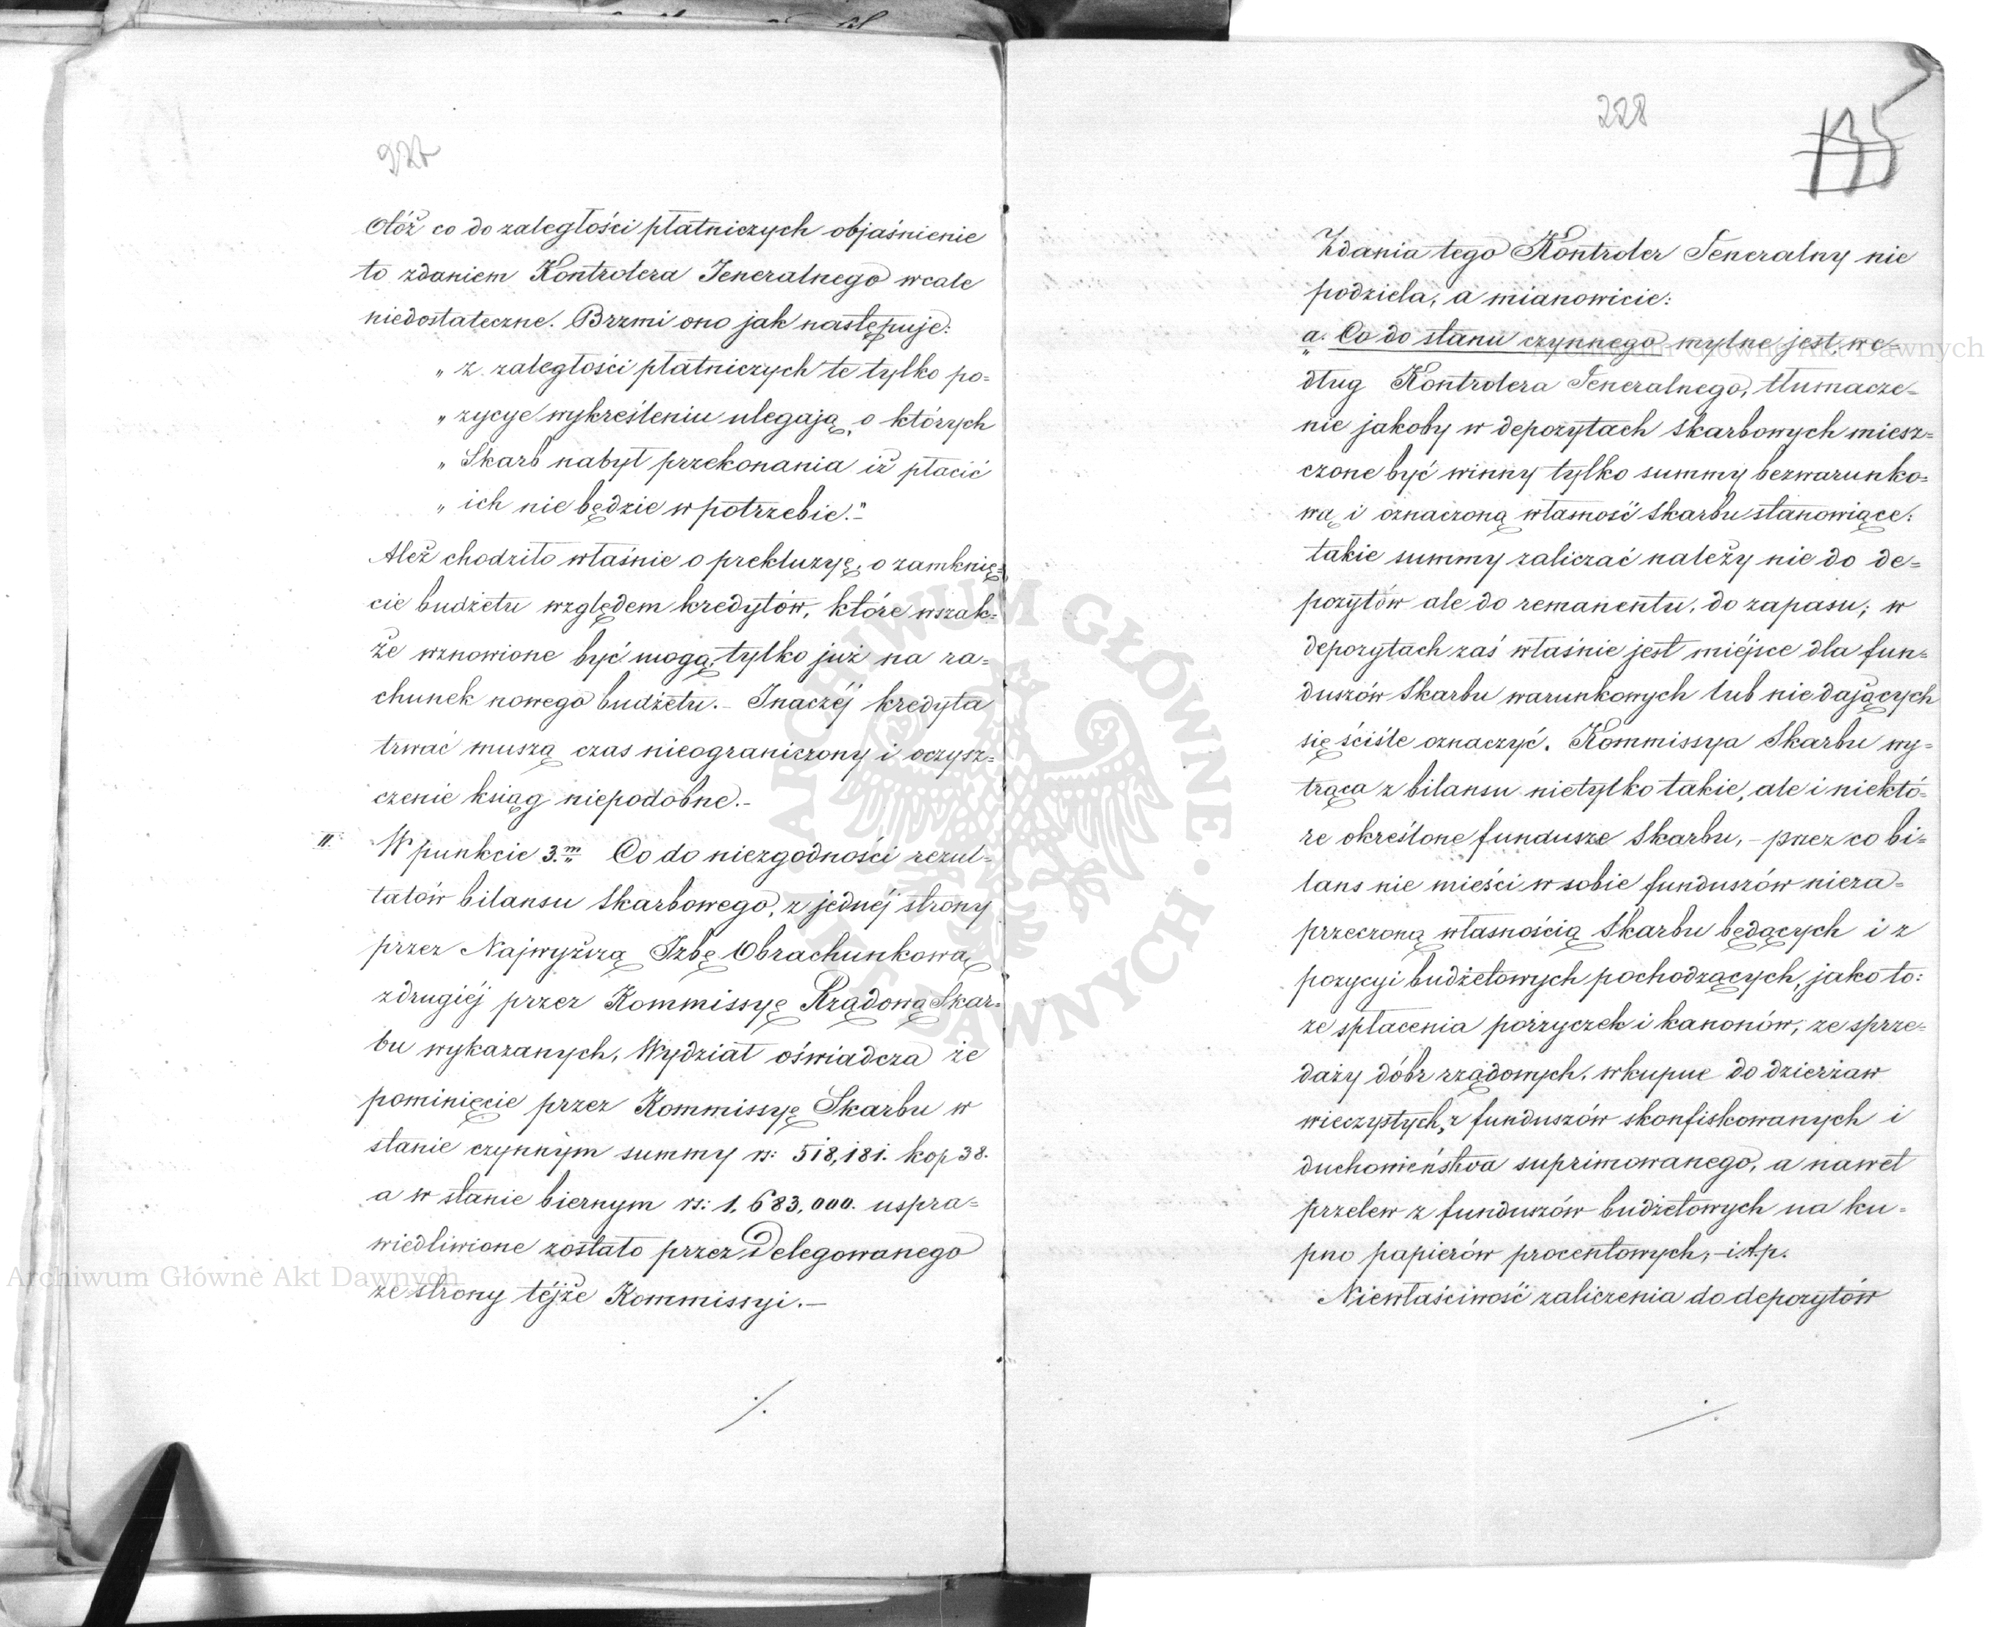 227
Otóż co do zaległości płatniczych objaśnienie
to zdaniem Kontrolera Jeneralnego wcale
niedostateczne. Brzmi ono jak następuje:
„ z zaległości płatniczych te tylko po=
„ zycye wykreśleniu ulegają, o których
„ Skarb nabył przekonania iż płacić
„ ich nie będzie w potrzebie."
Ależ chodziło właśnie o prekluzyę, o zamknię=
cie budżetu względem kredytów, które wszak=
że wznowione być mogą, tylko już na ra=
chunek nowego budżetu.- Inaczéj kredyta
trwać muszą czas nieograniczony i oczysz=
czenie ksiąg niepodobne.-
II. W punkcie 3.m Co do niezgodności rezul=
tatów bilansu Skarbowego, z jednéj strony
przez Najwyższą Izbę Obrachunkową
z drugiéj przez Kommissyę Rządową Skar=
bu wykazanych, Wydział oświadcza że
pominięcie przez Kommissyę Skarbu w
stanie czynnym summy rs: 518,181. kop 38.
a w stanie biernym rs: 1,683,000. uspra=
wiedliwione zostało przez Delegowanego
ze strony téjże Kommissyi.-
./.
228
135
Zdania tego Kontroler Jeneralny nie
podziela, a mianowicie:
a. Co do stanu czynnego mylne jest, we=
dług Kontrolera Jeneralnego, tłumacze=
nie jakoby w depozytach Skarbowych miesz=
czone być winny tylko summy bezwarunko=
wą i oznaczoną własność Skarbu stanowiące:
takie summy zaliczać należy nie do de=
pozytów ale do remanentu, do zapasu; w
depozytach zaś właśnie jest miéjsce dla fun=
duszów Skarbu warunkowych lub nie dających
się ściśle oznaczyć. Kommissya Skarbu wy=
trąca z bilansu nietylko takie, ale i niektó=
re określone fundusze Skarbu, - przez co bi=
lans nie mieści w sobie funduszów nieza=
przeczoną własnością Skarbu będących i z
pozycyi budżetowych pochodzących, jako to:
ze spłacenia pożyczek i kanonów, ze sprze=
daży dóbr rządowych, wkupne do dzierżaw
wieczystych, z funduszów skonfiskowanych i
duchowieństwa suprimowanego, a nawet
przelew z funduszów budżetowych na ku=
pno papierów procentowych, - i.t.p.
Niewłaściwość zaliczenia do depozytów
./.
Archiwum Główne Akt Dawnych
Archiwum Główne Akt Dawnych
ARCHIWUM GŁÓWNE AKT DAWNYCH